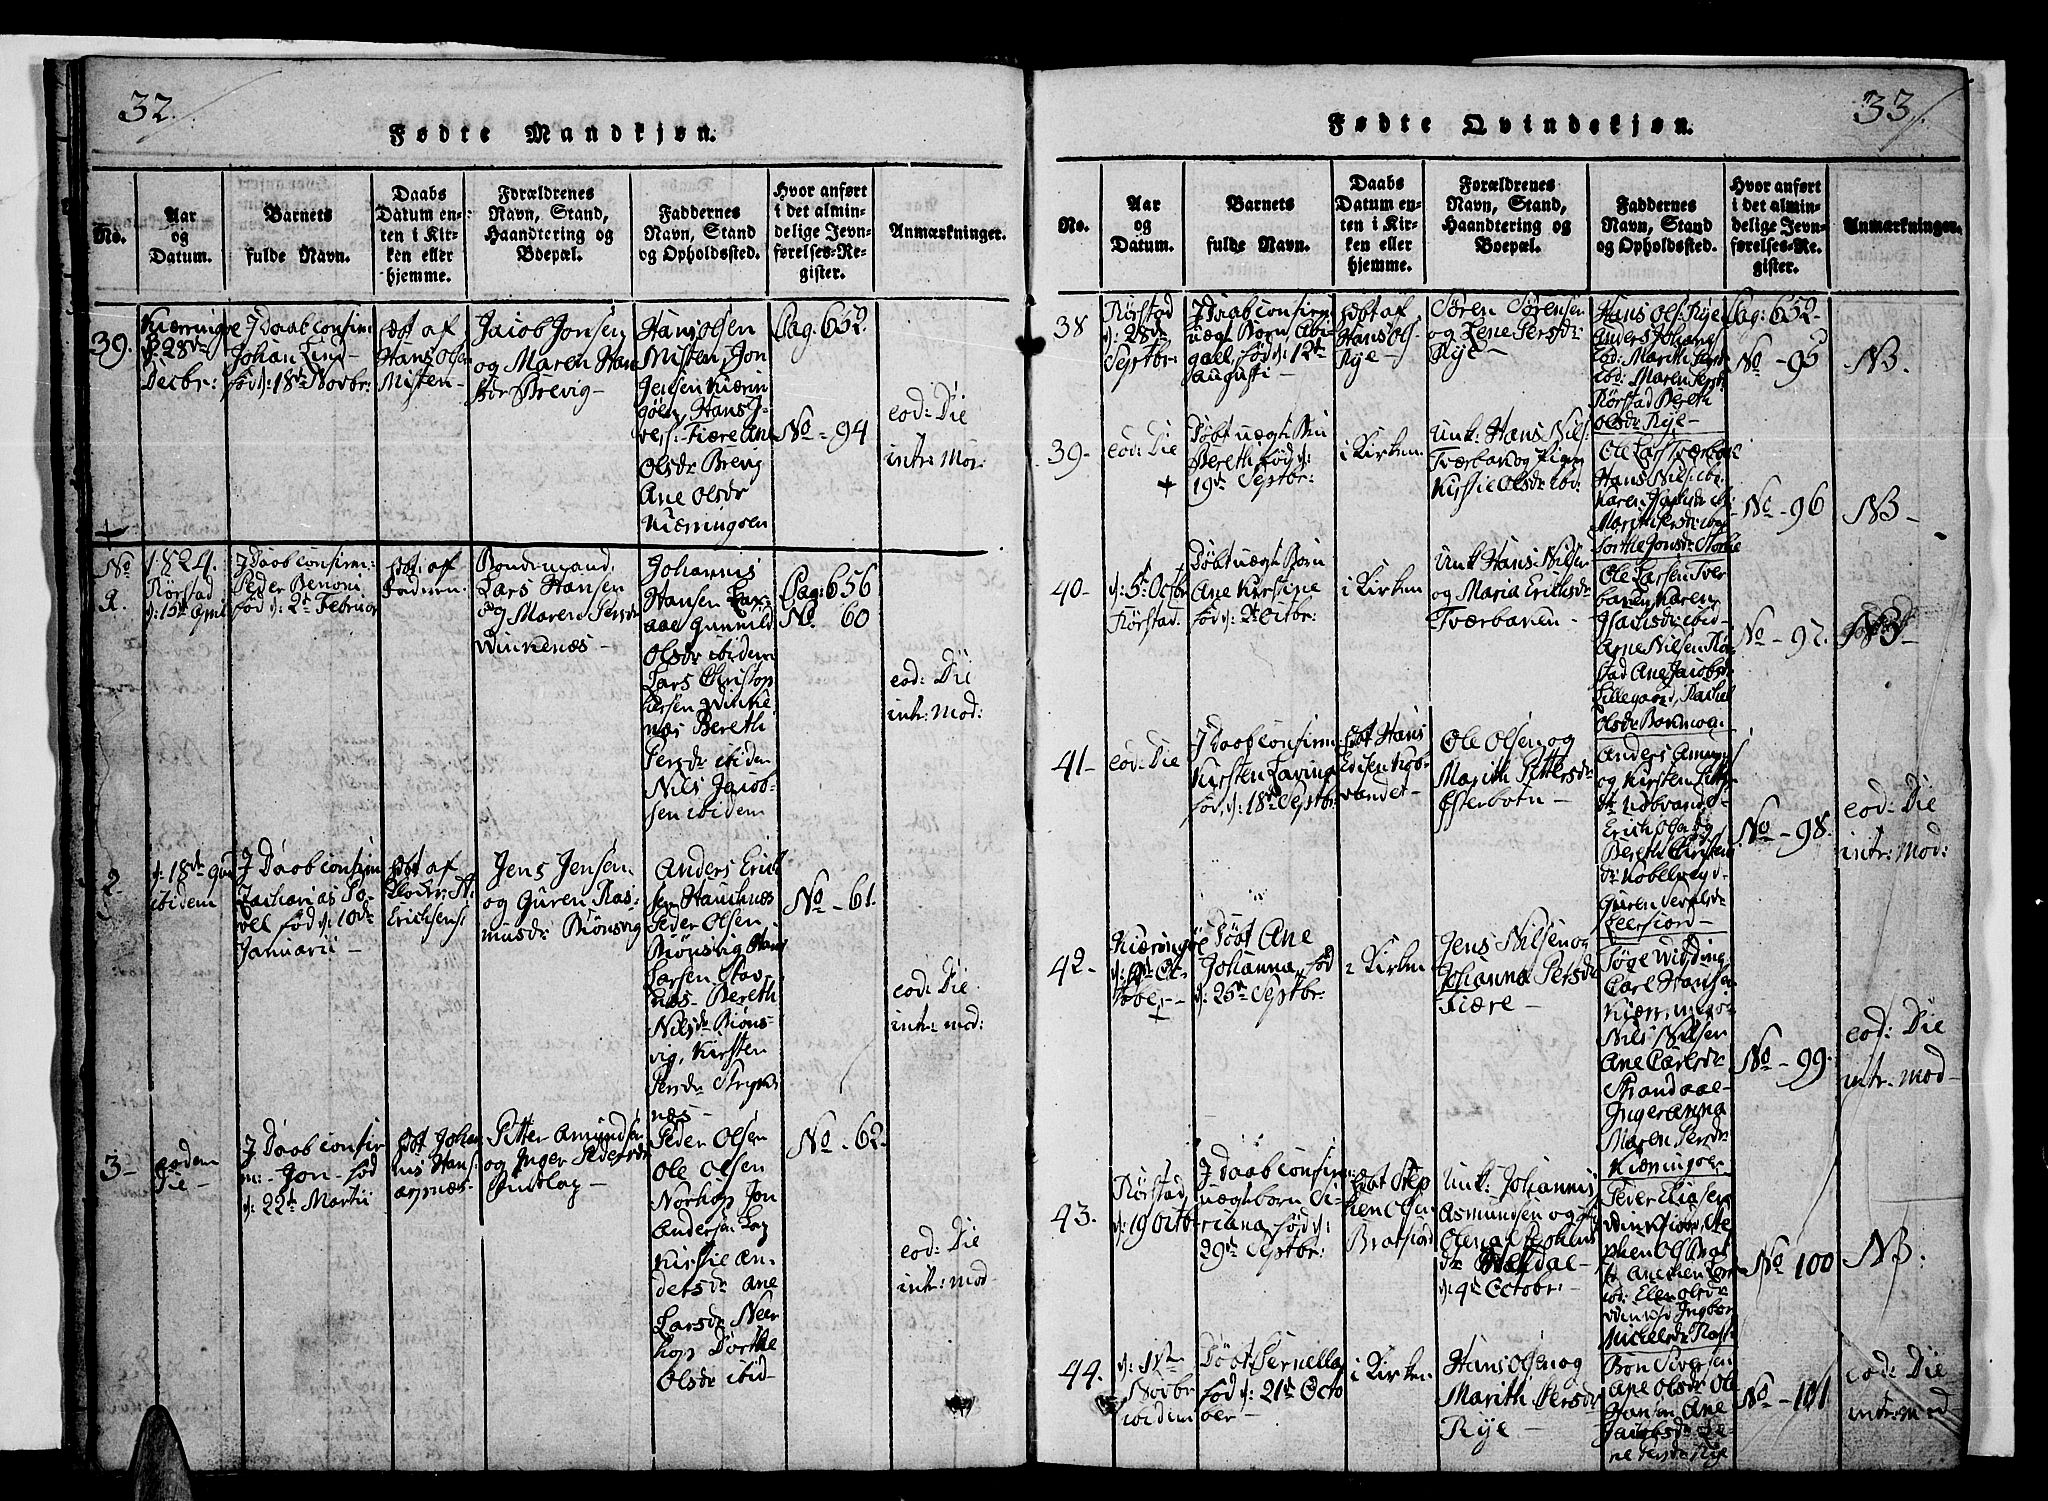 32.
Fødte Mandkjøn.
No.
Aar
og
Datum.
Barnets
fulde Navn.
Daabs
Datum en-
ten i Kir-
ken eller
hjemme.
Forældrenes
Navn, Stand,
Haandtering og
Boepæl.
Faddernes
Navn, Stand
og Opholdssted.
Hvor anført
i det almin-
delige Jevn-
førelses-Re-
gister.
Anmærkninger.
39.
Kierringøe
d: 28de
Decbr:
J Daab confirm:
Johan Lind
fød d: 18de Novbr:
Døbt af
Hans Olsen
Misten
Jacob Jonsen
og Maren Han
sdr Brevig
Hans Olsen
Misten, Jon
Jensen Kierin
göen, Hans J-
vers: Fiære Ane
Olsdr Brevig
Ane Olsdr
Kierringöen
Pag: 652.
No - 94
eod: Die
intr: Mod:
No
1.
1824.
Rörstad
d: 15de April
J Daab confirm:
Peder Benoni
fød d: 2de Februar
Døbt af
Bondemand
Lars Hansen
og Maren Persdr
Winkenæs
Johannis
Hansen
Gunnild
Olsdr ibidem
Lars Christop
hersen Winke
næs Bereth
Persdr ibidem
Nils Jacob-
sen ibidem
Pag: 656
No 60
eod: Die
intr: Mod:
2-
d: 18de
ibidem
J Daab confirm
Zacharias Po-
vel fød d: 10de
Januarii
Døbt af
Klokker A.
Erichsen
Jens Jensen
og Guren Ras-
musdr Biönsvig
Anders Erich
sen Hauknæs
Peder Olsen
Biönsvig Hans
Larsen Stav
næs Bereth
Nilsdr Biöns-
vig, Kirsten
Persdr Stryk
næs
No - 61.
eod: Die
intr: mod:
3-
eodem
Die
J Daab confir
m: Jon fød
d: 22de Martii
Døbt Johan
nis Hans:
Petter Amundsen
og Inger Pedersdr
Peder Olsen
Ole Olsen
Nørhop Jon
Andersen
Kirstie An-
dersdr Ane
Larsdr Neer
hop Dorthe
Olsdr ibid
No - 62
eod: Die
intr: mod
33.
Fødte Qvindekjøn.
No.
Aar
og
Datum.
Barnets
fulde Navn.
Daabs
Datum en-
ten i Kir-
ken eller
hjemme.
Forældrenes
Navn, Stand,
Haandtering og
Boepæl.
Faddernes
Navn, Stand
og Opholdssted.
Hvor anført
i det almin-
delige Jevn-
førelses-Re-
gister.
Anmærkninger.
38
Rörstad
d: 28de
Septbr:
J Daab confirm
uægt Barn Abi-
gael, fød d: 12te
Augusti
Døbt af
Hans Ols:
Rye
Sören Sörensen
og Lene Persdr
Rye
Hans Ols: Rye
Anders Johans:
eod: Marith Persdr
eod: Maren Persdr
Rörstad Bereth
Olsdr Rye
Pag: 652.
No - 95
NB.
39-
eod: Die
Döbt uægte Barn
Bereth fød d:
19de Septbr:
i Kirken
Unk: Hans Nils:
Tværbak og Pigen
Kirstie Olsdr eod:
Ole Lars: Tværbak
Hans Nils: ibid
Dorthe Jonsdr
No - 96
NB -
40-
d: 5te Octbr
Rörstad
Döbt uægt Barn
Ane Kirstine
fød d: 2de Octbr:
i Kirken
Unk Hans Nilsen
og Maria Erichsdr
Tværbakken
Ole Larsen Tver
bakken Karen
Hansdr ibid
Arne Nilsen Rö-
stad Ane Jacobsdr
Lillegaard, Rachel
Olsdr
No - 97.
NB
41-
eod: Die
J Daab confirm:
Kirsten Lavina
fød d: 18de Septbr:
Døbt Hans
Ole Olsen og
Marith Pettersdr
Østerbotn
Anders Amund
og Kirsten
Erich Olsen
Bereth Christens
dr
Leerfiord
No - 98.
eod: Die
intr: Mod:
42-
Kierringöe
d: 12te Oc-
tober
Döbt Ane
Johanna, fød
d: 25de Septbr:
i Kirken
Jens Nilsen og
Johanna Persdr
Fiære
Töge Widding
Carl Hansen
Kierringöe
Nils Nilsen
Ane Carlsdr
Strandaae
Inger Anna
Maren Persdr
Kieringöen
No - 99.
eod: Die
intr: mod
43.
Rörstad
d: 19 Octb
J Daab confirm:
uægt barn Si-
riana, fød d:
29de Septbr:
Døbt Step
hen Olsen
Bratfiord
Unk: Johannis
Asmundsen og
Olena Stephens
dr
d: 4de Octobr:
Peder Eliasen
phen Ols: Brat
No 100
NB:
44.
d: 1te
Novbr
ibidem
Döbt Pernella
fød d: 21de Octo
ber
i Kirken
Hans Olsen og
Marith Persdr
Rye
Bön Siversen
Ane Olsdr Ole
Hansen Ane
Jacobsdr Le-
ne Persdr Rye
No - 101
eod: Die
intr: mod